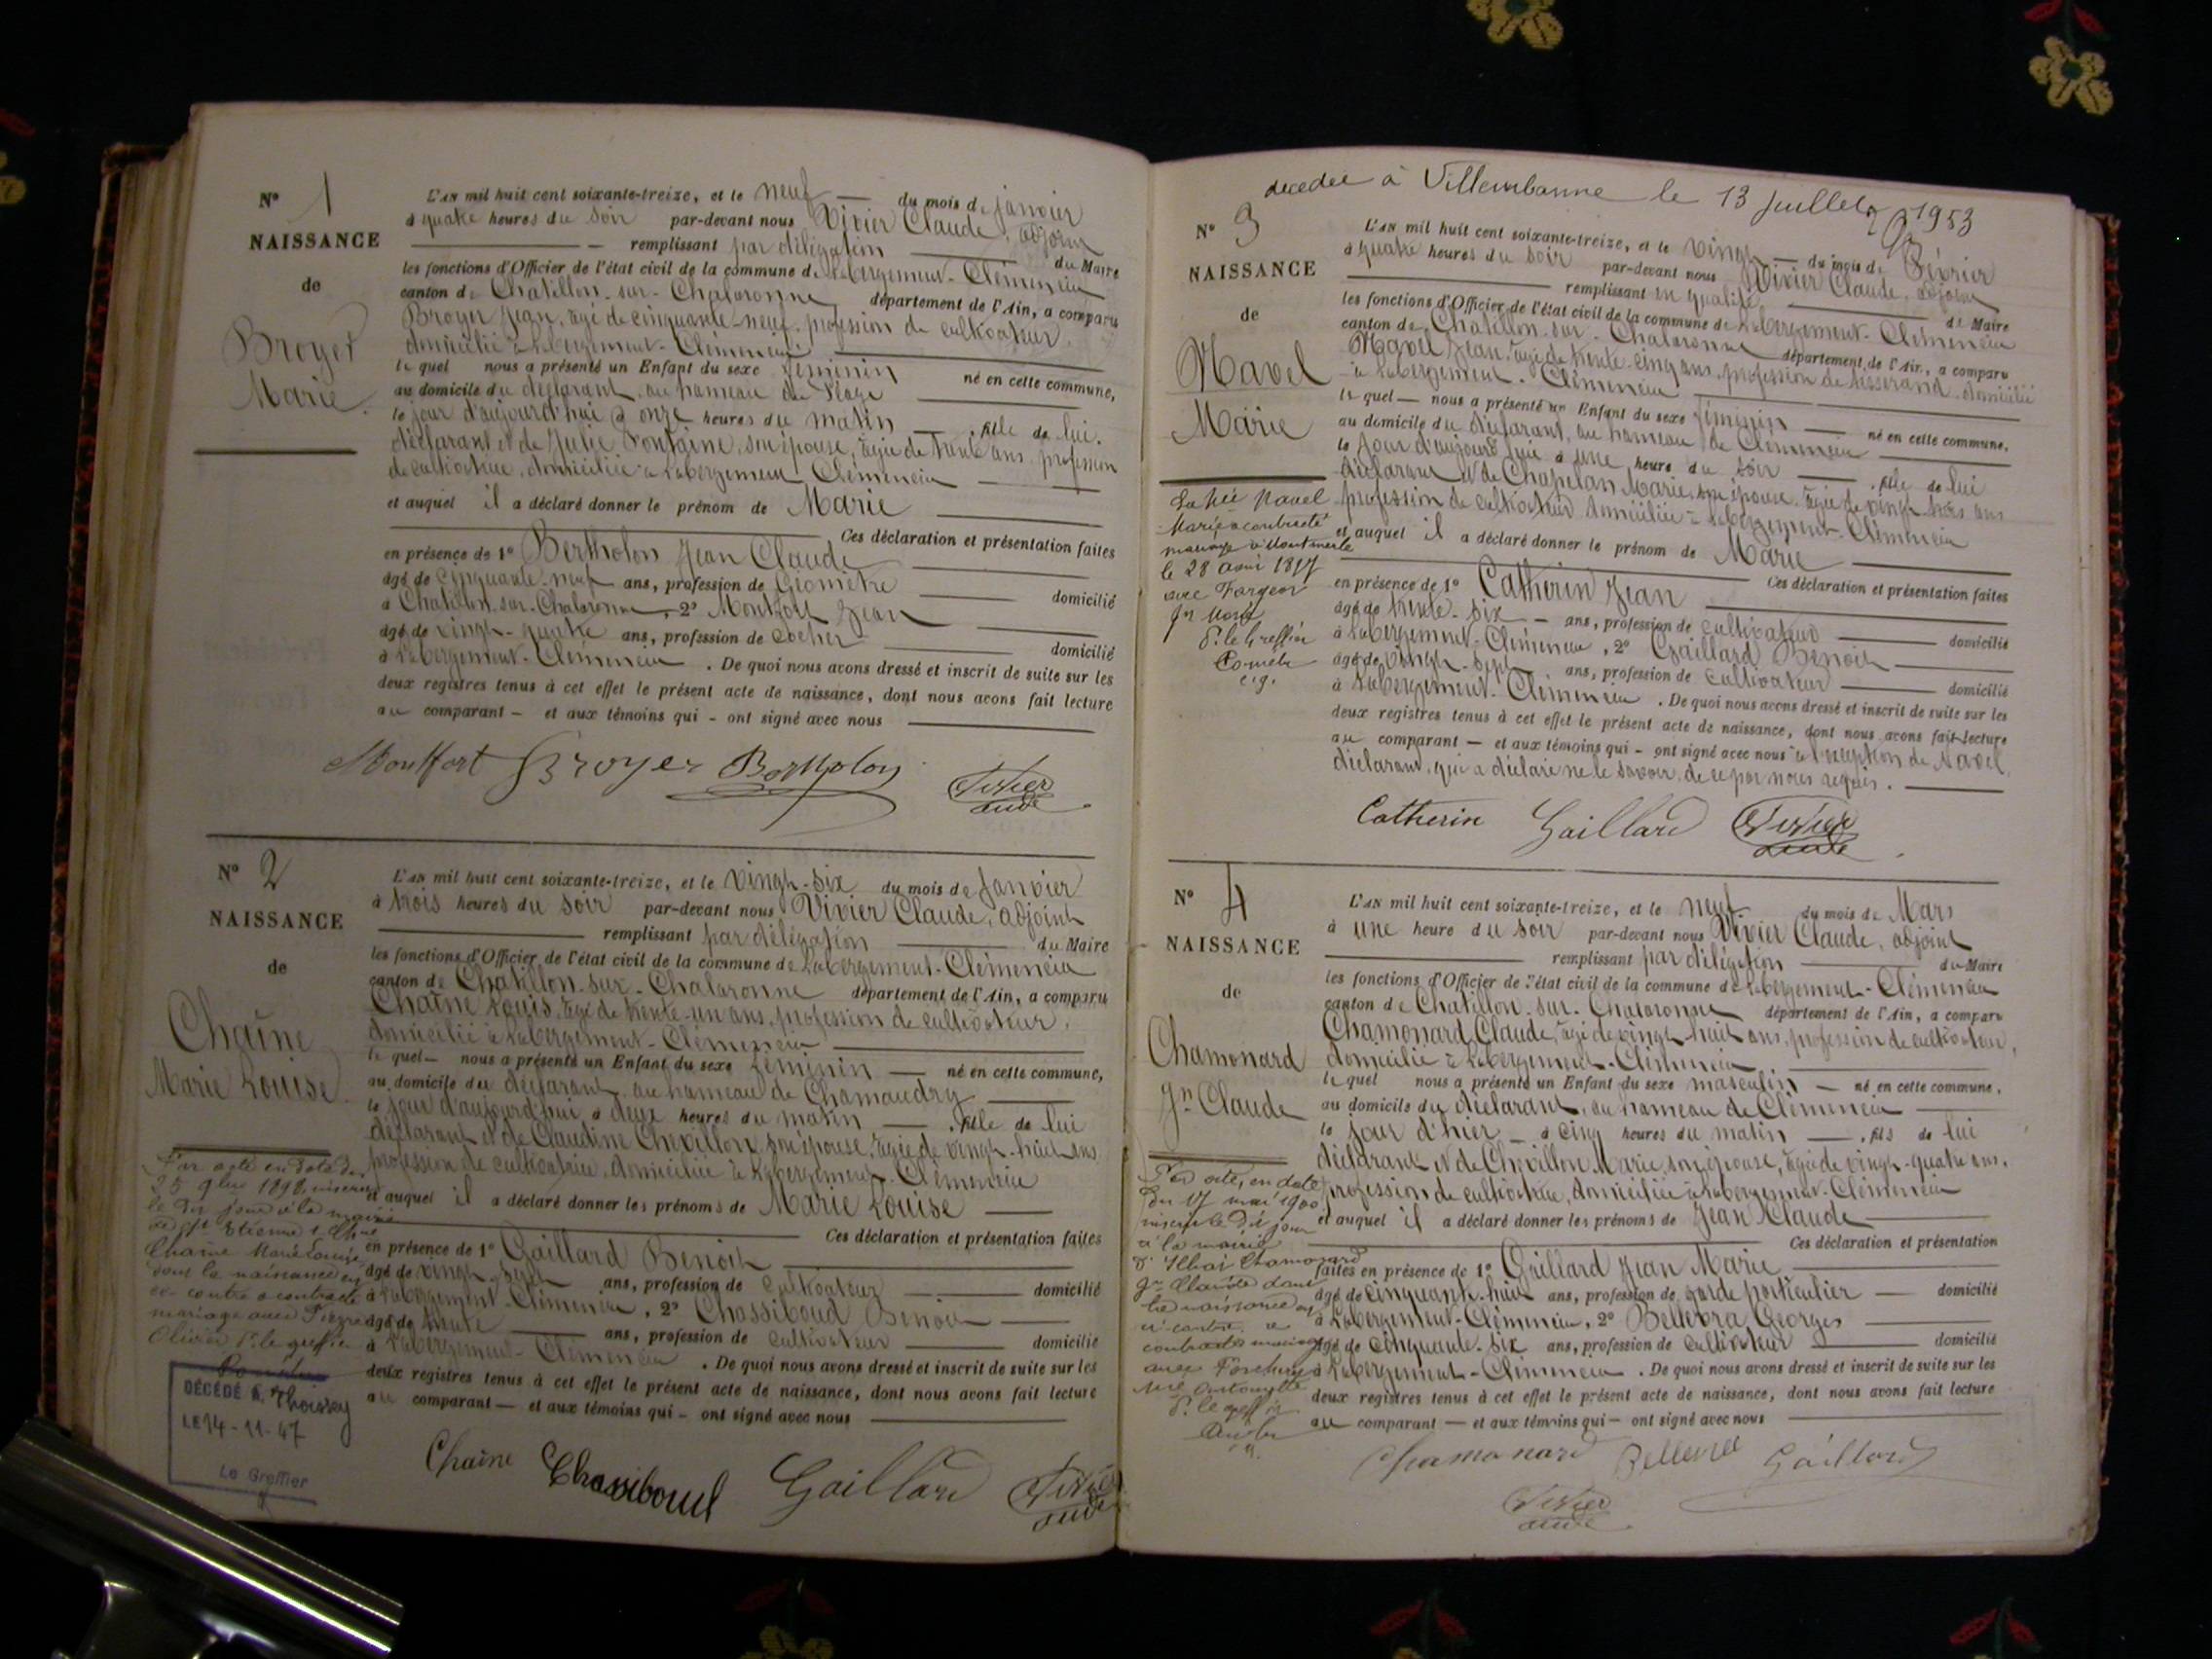 N° 1
NAISSANCE
de
Broyer
Marie
L'AN mil huit cent soixante-treize, et le neuf du mois de janvier
à quatre heures du soir par-devant nous Vivier Claude, adjoint
remplissant par délégation du Maire
les fonctions d'Officier de l'état civil de la commune de Labergement-Clémencia
canton de Chatillon-sur-Chalaronne département de l'Ain, a comparu
Broyer Jean, âgé de cinquante-neuf, profession de cultivateur,
domicilié à Labergement-Clémencia
lequel nous a présenté un Enfant du sexe féminin né en cette commune,
au domicile du déclarant, au hameau de
le jour d'aujourd'hui à onze heures du matin, fille de lui
déclarant et de Julie Fontaine, son épouse, âgée de trente ans, profession
de cultivatrice, domiciliée à Labergement Clémencia
et auquel il a déclaré donner le prénom de Marie
Ces déclaration et présentation faites
en présence de 1° Bertholon Jean Claude
âgé de cinquante-neuf ans, profession de Géomètre domicilié
à Chatillon-sur-Chalaronne, 2° Montfort Jean
âgé de vingt-quatre ans, profession de cocher domicilié
à Labergement-Clémencia. De quoi nous avons dressé et inscrit de suite sur les
deux registres tenus à cet effet le présent acte de naissance, dont nous avons fait lecture
au comparant — et aux témoins qui - ont signé avec nous
Montfort Broyer Bertholon Vivier
N° 2
NAISSANCE
de
Chaîne
Marie Louise
L'AN mil huit cent soixante-treize, et le vingt-six du mois de janvier
à trois heures du soir par-devant nous Vivier Claude, adjoint
remplissant par délégation du Maire
les fonctions d'Officier de l'état civil de la commune de Labergement-Clémencia
canton de Chatillon-sur-Chalaronne département de l'Ain, a comparu
Chaîne Louis, âgé de trente-un ans, profession de cultivateur,
domicilié à Labergement-Clémencia
lequel — nous a présenté un Enfant du sexe féminin — né en cette commune,
au domicile du déclarant, au hameau de Chamaudry
le jour d'aujourd'hui à deux heures du matin —, fille de lui
déclarant et de Claudine Chevillon, son épouse, âgée de vingt-huit ans
profession de cultivatrice, domiciliée à Labergement-Clémencia
et auquel il a déclaré donner les prénoms de Marie Louise
Ces déclaration et présentation faites
en présence de 1° Gaillard Benoit
âgé de vingt-sept ans, profession de cultivateur domicilié
à Labergement-Clémencia, 2° Chassiboud Benoit
âgé de trente ans, profession de cultivateur domicilié
à Labergement-Clémencia. De quoi nous avons dressé et inscrit de suite sur les
deux registres tenus à cet effet le présent acte de naissance, dont nous avons fait lecture
au comparant — et aux témoins qui - ont signé avec nous
Par acte en date du
25 9bre 1898, inscrit
le dit jour à la mairie
de St Etienne s. Chne
Chaîne Marie Louise
dont la naissance est
ci-contre a contracté
mariage avec Pierre
Olivier P. le greffier
DÉCÉDÉ A Thoissey
LE 14-11-47
Le Greffier
Chaine Chassiboud Gaillard Vivier
décédée à Villeurbanne le 13 juillet 1953
N° 3
NAISSANCE
de
Navel
Marie
L'AN mil huit cent soixante-treize, et le vingt — du mois de Février
à quatre heures du soir par-devant nous Vivier Claude, adjoint
remplissant en qualité de Maire
les fonctions d'Officier de l'état civil de la commune de Labergement-Clémencia
canton de Chatillon-sur-Chalaronne département de l'Ain, a comparu
Navel Jean, âgé de trente-cinq ans, profession de tisserand, domicilié
à Labergement-Clémencia
lequel — nous a présenté un Enfant du sexe féminin — né en cette commune,
au domicile du déclarant, au hameau de Clémencia
le jour d'aujourd'hui à une heure du soir —, fille de lui
déclarant et de Chapelan Marie, son épouse, âgée de vingt-trois ans
profession de cultivateur, domiciliée à Labergement-Clémencia
et auquel il a déclaré donner le prénom de Marie
Ces déclaration et présentation faites
en présence de 1° Catherin Jean
âgé de trente-six — ans, profession de cultivateur domicilié
à Labergement-Clémencia, 2° Gaillard Benoit
âgé de vingt-sept ans, profession de cultivateur domicilié
à Labergement-Clémencia. De quoi nous avons dressé et inscrit de suite sur les
deux registres tenus à cet effet le présent acte de naissance, dont nous avons fait lecture
au comparant — et aux témoins qui - ont signé avec nous à l'exception de Navel,
déclarant, qui a déclaré ne le savoir, de ce par nous requis.
La Née Navel
Marie a contracté
mariage à
le 28 avril 1897
avec Fargeot
P. le Greffier
Catherin Gaillard Vivier
N° 4
NAISSANCE
de
Chamonard
Jn Claude
L'AN mil huit cent soixante-treize, et le neuf du mois de Mars
à une heure du soir par-devant nous Vivier Claude, adjoint
remplissant par délégation du Maire
les fonctions d'Officier de l'état civil de la commune de Labergement-Clémencia
canton de Chatillon-sur-Chalaronne département de l'Ain, a comparu
Chamonard Claude, âgé de vingt-huit ans, profession de cultivateur,
domicilié à Labergement-Clémencia
lequel nous a présenté un Enfant du sexe masculin — né en cette commune,
au domicile du déclarant, au hameau de Clémencia
le jour d'hier — à cinq heures du matin —, fils de lui
déclarant et de Chevillon Marie, son épouse, âgée de vingt-quatre ans,
profession de cultivatrice, domiciliée à Labergement-Clémencia
et auquel il a déclaré donner les prénoms de Jean Claude
Ces déclaration et présentation
faites en présence de 1° Gaillard Jean Marie
âgé de cinquante-huit ans, profession de garde particulier — domicilié
à Labergement-Clémencia, 2° Georges
âgé de cinquante-six ans, profession de cultivateur domicilié
à Labergement-Clémencia. De quoi nous avons dressé et inscrit de suite sur les
deux registres tenus à cet effet le présent acte de naissance, dont nous avons fait lecture
au comparant — et aux témoins qui — ont signé avec nous
Par acte, en date
du 17 mai 1900
inscrit le dit jour
à la mairie
Chamonard
Jn Claude dont
la naissance est
ci-contre a
contracté mariage
avec
P. le greffier
Chamonard Gaillard
Vivier